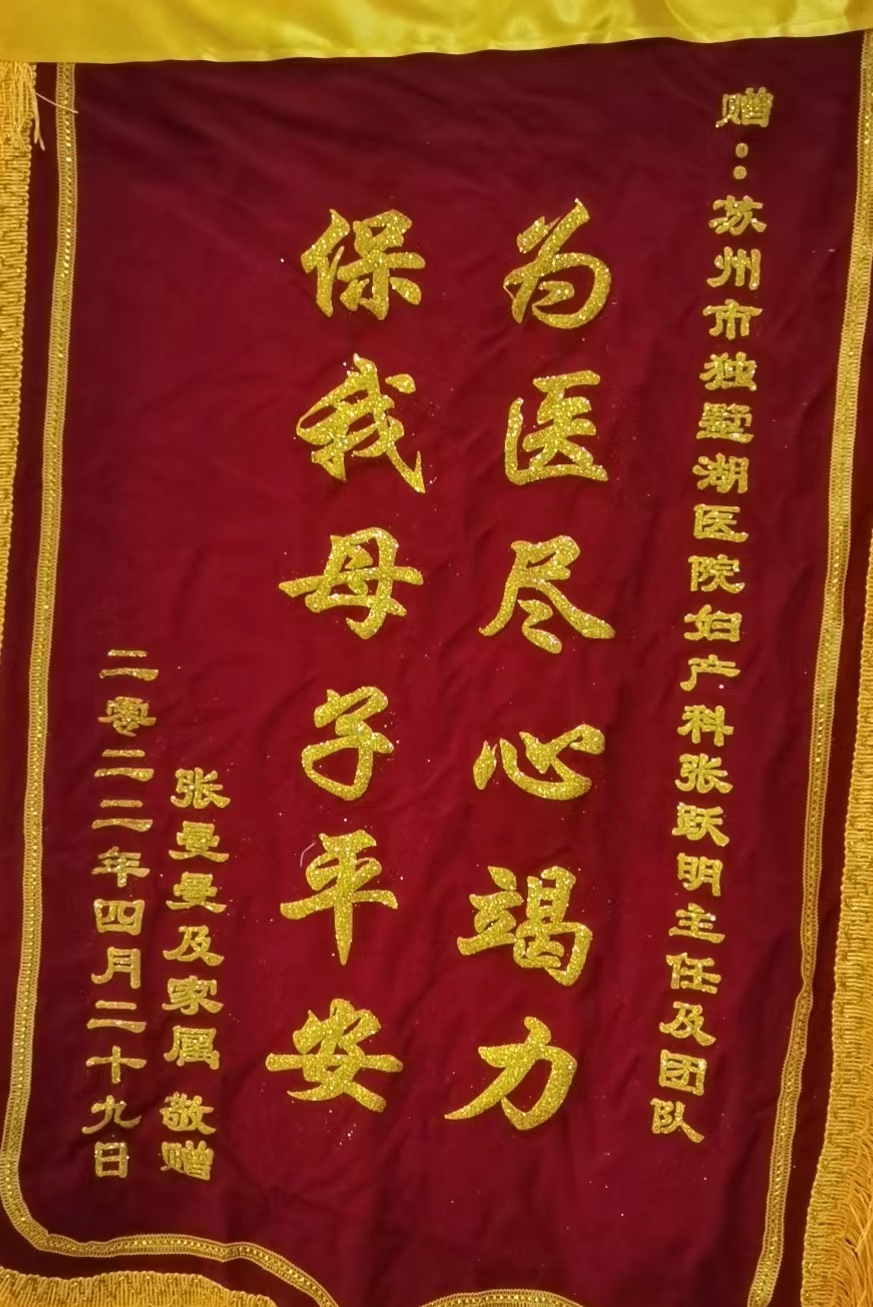 赠：苏州市独墅湖医院妇产科张跃明主任及团队
为医尽心竭力
保我母子平安
张曼曼及家属 敬赠
二零二二年四月二十九日